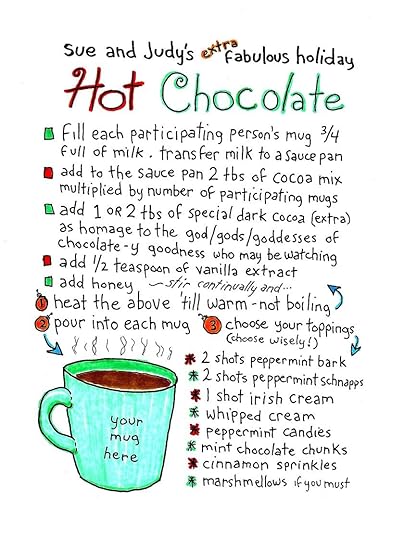 Sue and Judy's extra fabulous holiday
Hot Chocolate
fill each participating person's mug 3/4
full of milk. transfer milk to a sauce pan
add to the sauce pan 2 tbs of cocoa mix
multiplied by number of participating mugs
add 1 OR 2 tbs of special dark cocoa (extra)
as homage to the god/gods/goddesses of
chocolate-y goodness who may be watching
add 1/2 teaspoon of vanilla extract
add honey ~stir continually and...
1 heat the above 'till warm-not boiling
2 pour into each mug
3 choose your toppings
(choose wisely!)
2 shots peppermint bark
2 shots peppermint schnapps
1 shot irish cream
whipped cream
peppermint candies
mint chocolate chunks
cinnamon sprinkles
marshmellows if you must
your
mug
here